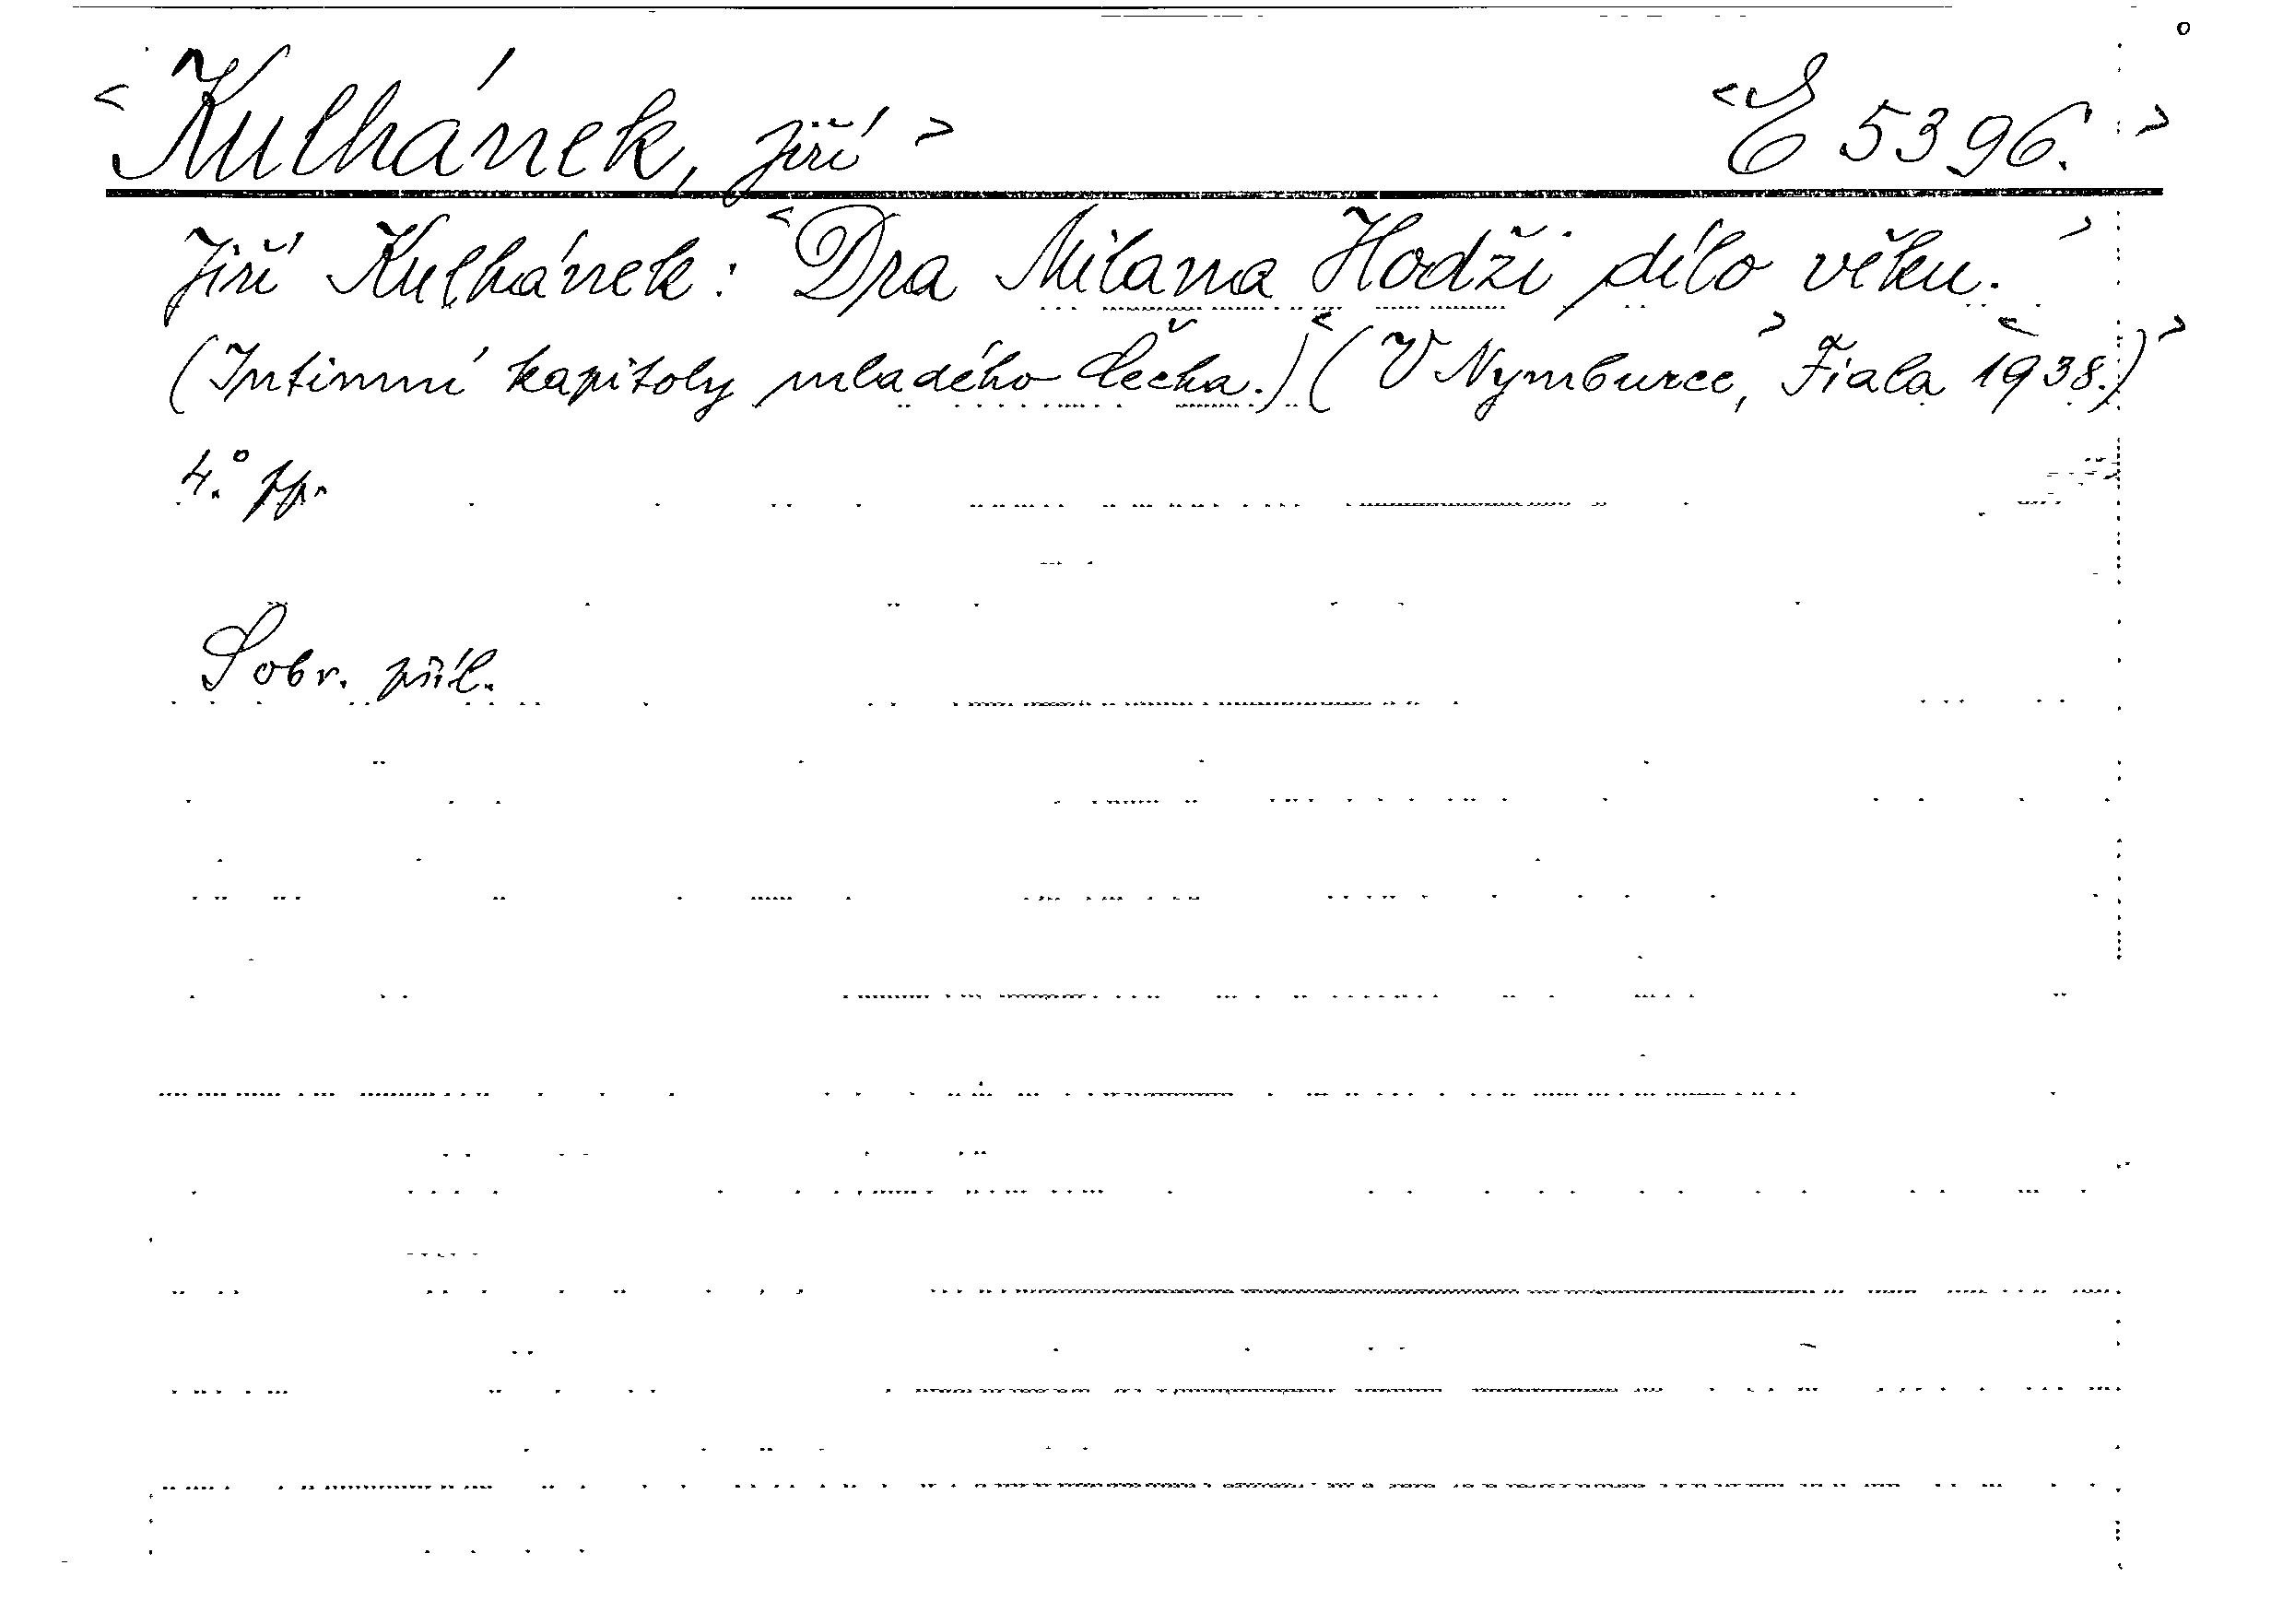 <Kulhánek, Jiří> <E 5396.>
Jiří Kulhánek: <Dra Milana Hodži dílo věku.>
(Intimní kapitoly mladého Čecha.) <(V Nymburce,> Fiala <1938.)>
4.° pp.
S obr. příl.